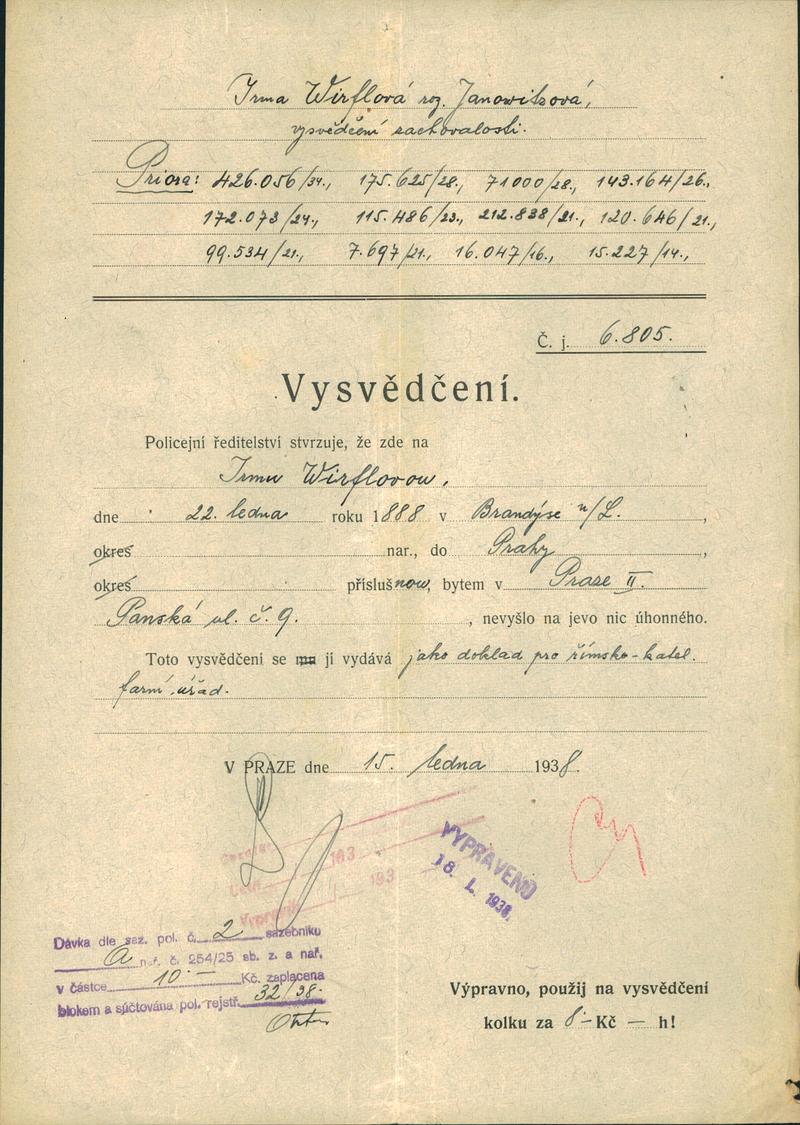 Irma Wirflová roz. Janowitzová,
vysvědčení zachovalosti.
Priora: 426.056/34., 175.625/28., 71000/28., 143.164/26.,
172.073/24., 115.486/23., 212.838/21., 120.646/21.,
99.534/21., 7.697/21., 16.047/16., 15.227/14.,
Č. j. 6.805.
Vysvědčení.
Policejní ředitelství stvrzuje, že zde na
Irmu Wirflovou,
dne 22. ledna roku 1888 v Brandýse n/L.,
okres nar., do Prahy,
okres příslušnou, bytem v Praze II.
Panská ul. č. 9., nevyšlo na jevo nic úhonného.
Toto vysvědčení se mu jí vydává jako doklad pro římsko-katol.
farní úřad.
V PRAZE dne 15. ledna 1938.
193
Cy
VYPRAVENO
18. I. 1938.
193
Dávka dle saz. pol. č. 2 sazebníku
A nař. č. 254/25 sb. z. a nař.
v částce 10 – Kč. zaplacena
blokem a súčtována pol. rejstř. 32/38.
Výpravno, použij na vysvědčení
kolku za 8·– Kč — h!